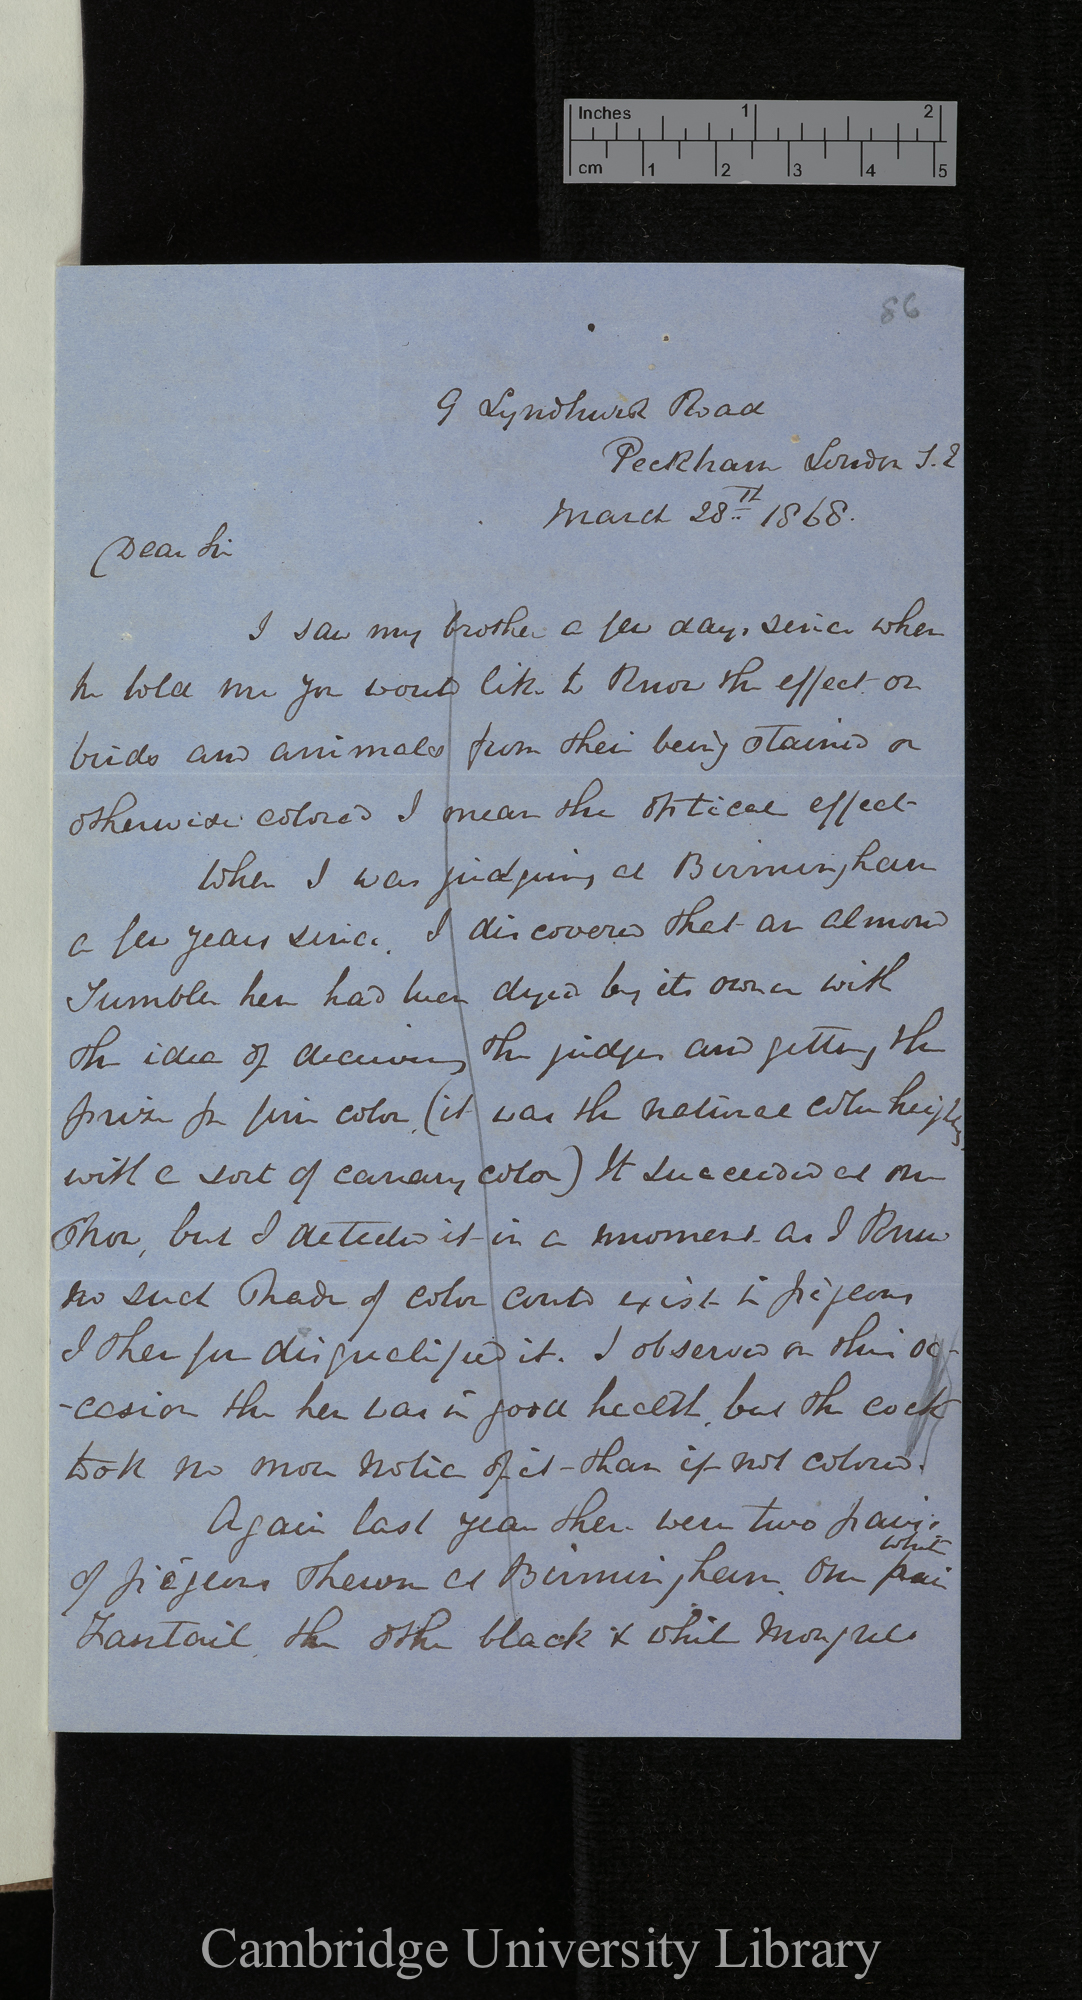 Inches 1 2
cm 1 2 3 4 5
86
9 Lyndhurst Road
Peckham London S.E
March 28th 1868.
Dear Sir
I saw my brother a few days since when
he told me you would like to know the effect on
birds and animals from their being stained or
otherwise colored I mean the optical effect
When I was judging at Birmingham
a few years since, I discovered that an almond
Tumbler hen had been dyed by its owner with
the idea of deceiving the judges and getting the
prize for fine color, (it was the natural color heightened
with a sort of canary color) It succeeded at one
Show, but I detected it in a moment as I knew
no such shade of color could exist in pigeons
I therefore disqualified it. I observed on this oc-
-casion the hen was in good health, but the cock
took no more notice of it than if not colored.
Again last year there were two pairs
of pigeons shewn at Birmingham, one pair
white
Fantail the other black & white Mongrels
Cambridge University Library